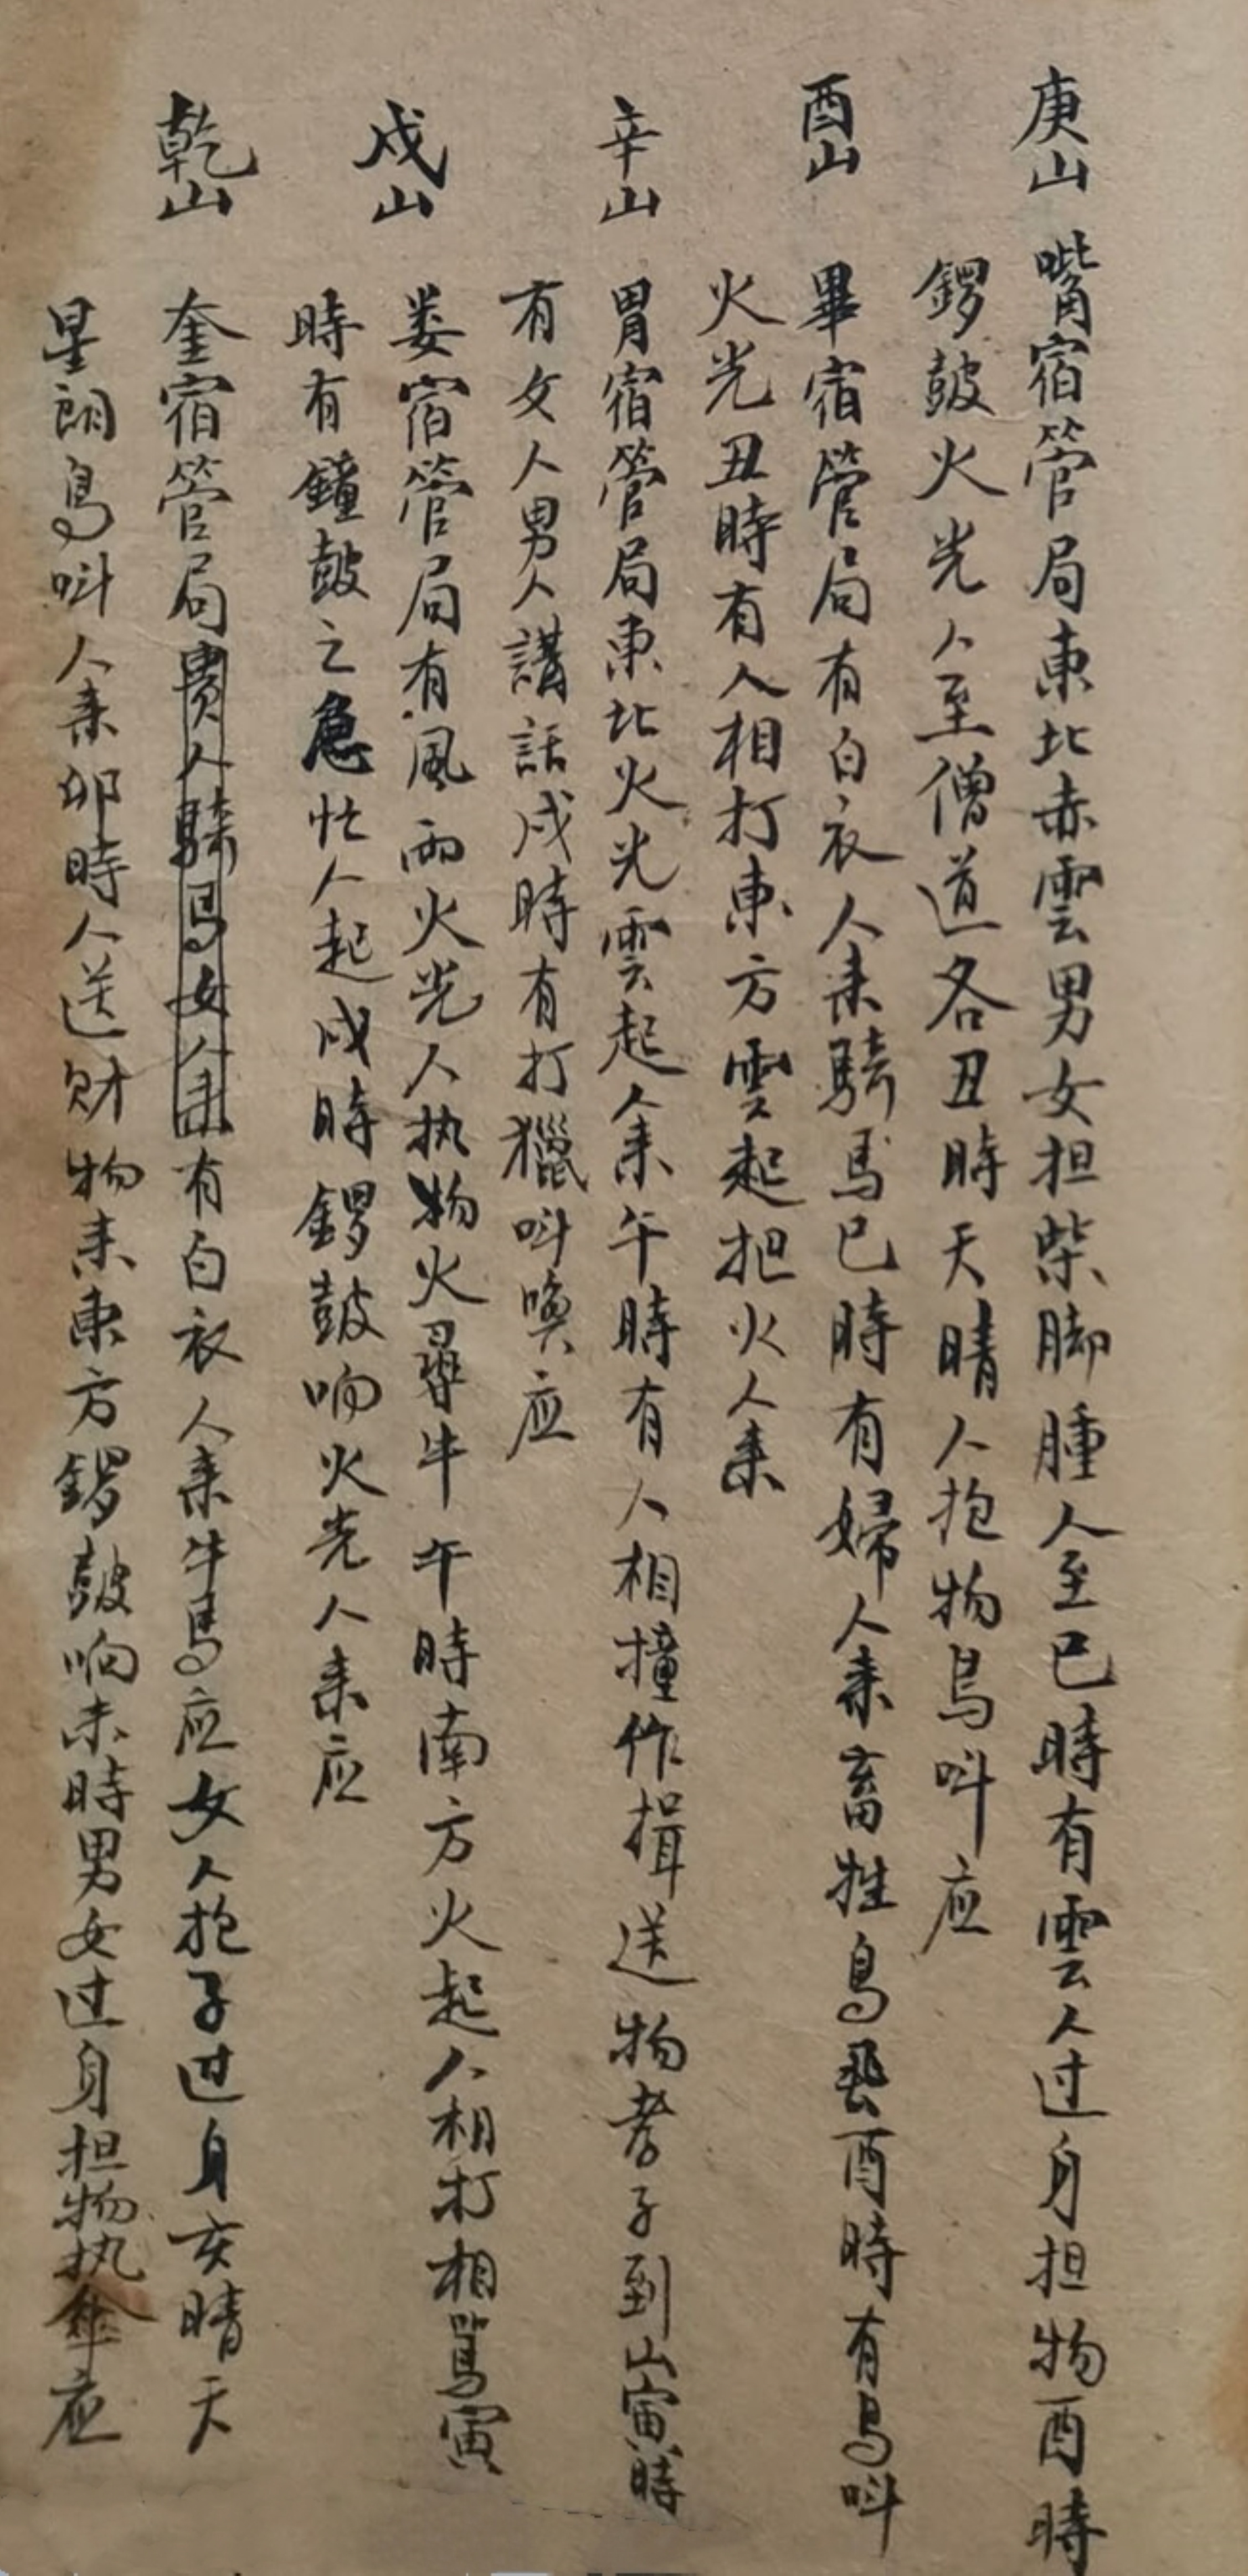 庚山 嘴宿管局東北赤雲男女担柴脚腫人至巳時有雲人过身担物酉時
鑼鼓火光人至僧道各丑時天晴人抱物鳥呌应
酉山 畢宿管局有白衣人来騎馬巳時有婦人来畜牲鳥飛酉時有鳥呌
火光丑時有人相打東方雲起担火人来
辛山 胃宿管局東北火光雲起人来午時有人相撞作揖送物孝子到山寅時
有女人男人講話戌時有打獵呌喚应
戌山 娄宿管局有風雨火光人执物火尋牛午時南方火起人相打相罵寅
時有鐘鼓之急忙人起戌時鑼鼓响火光人来应
乾山 奎宿管局贵人騎馬女人来有白衣人来牛馬应女人抱子过身亥晴天
星朗鳥呌人来卯時人送财物来東方鑼鼓响未時男女过身担物执傘应